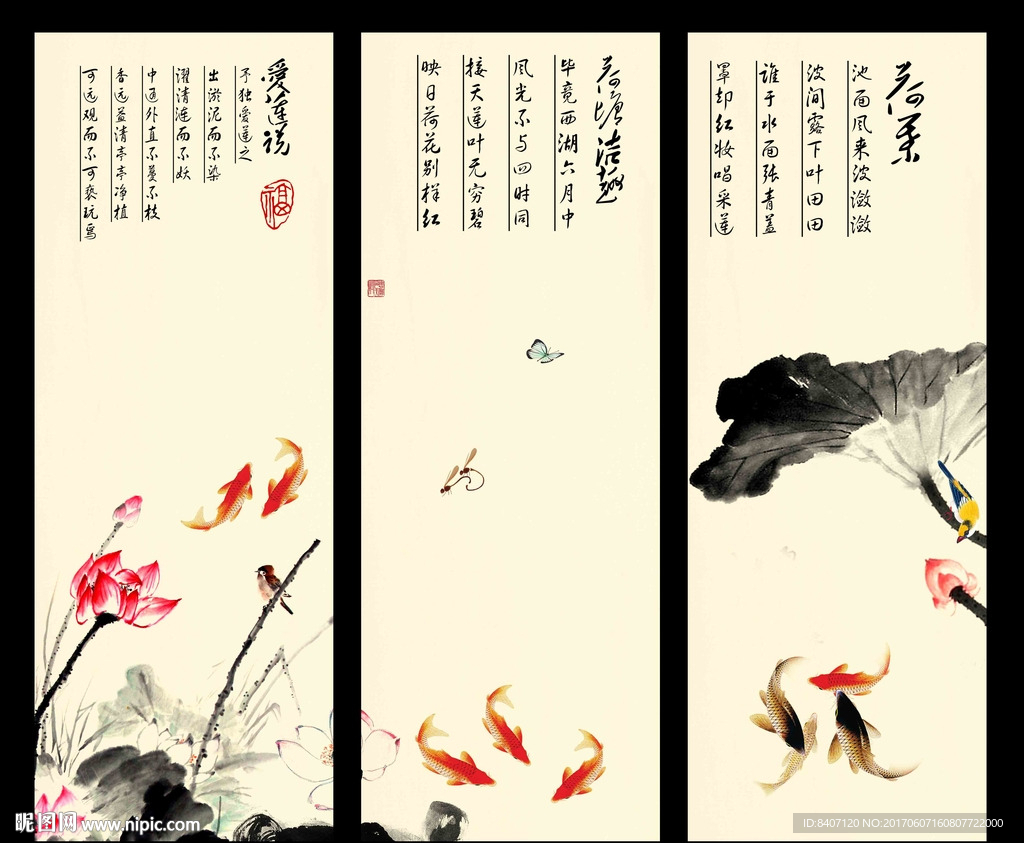 愛莲说
予独爱莲之
出淤泥而不染
濯清涟而不妖
中通外直不蔓不枝
香远益清亭亭净植
可远观而不可亵玩焉
福
荷塘洁趣
毕竟西湖六月中
风光不与四时同
接天莲叶无穷碧
映日荷花别样红
荷葉
池面风来波潋潋
波间露下叶田田
谁于水面张青盖
罩却红妆唱采莲
昵图网 www.nipic.com
ID:8407120 NO:20170607160807722000